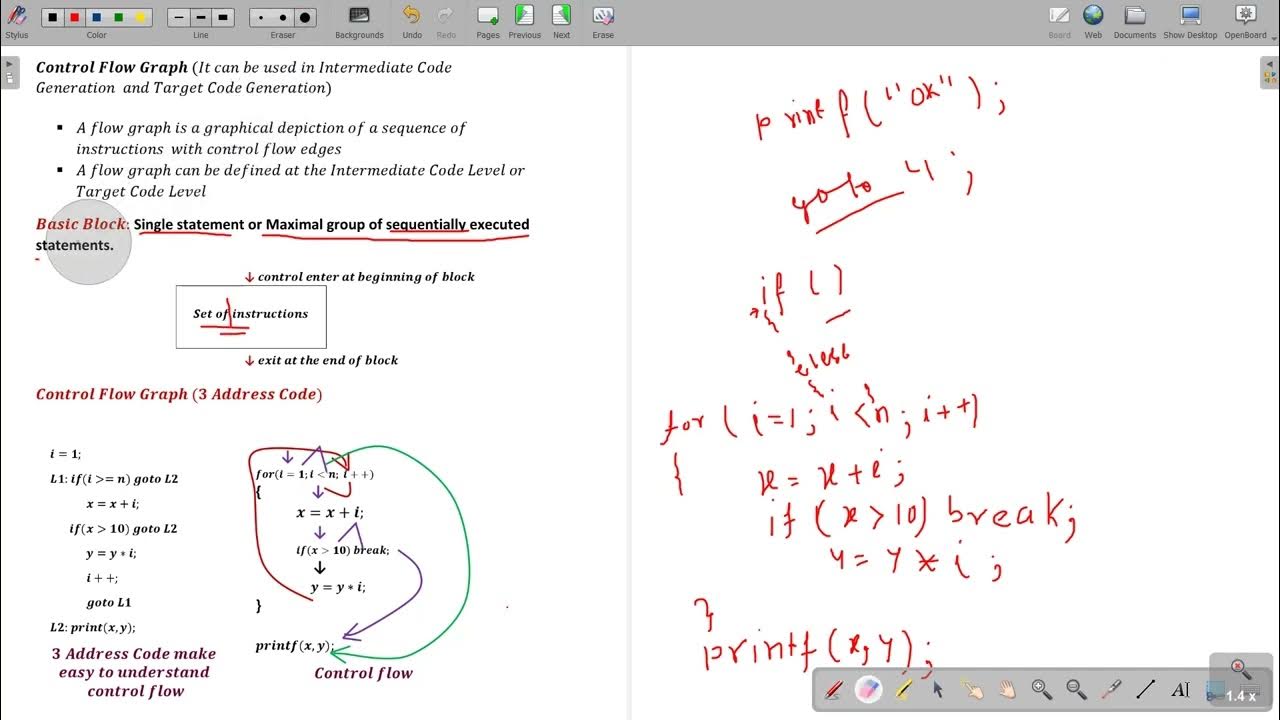 Stylus Color Line Eraser Backgrounds Undo Redo Pages Previous Next Erase Board Web Documents Show Desktop OpenBoard
Control Flow Graph (It can be used in Intermediate Code
Generation and Target Code Generation)
▪ A flow graph is a graphical depiction of a sequence of
instructions with control flow edges
▪ A flow graph can be defined at the Intermediate Code Level or
Target Code Level
Basic Block: Single statement or Maximal group of sequentially executed
statements.
↓ control enter at beginning of block
Set of instructions
↓ exit at the end of block
Control Flow Graph (3 Address Code)
i = 1;
L1: if(i >= n) goto L2
x = x + i;
if(x > 10) goto L2
y = y * i;
i + +;
goto L1
L2: print(x, y);
3 Address Code make
easy to understand
control flow
for(i = 1; i < n; i + +)
{
x = x + i;
if(x > 10) break;
y = y * i;
}
printf(x, y);
Control flow
printf("OK");
goto 4;
if ( )
{
}
else
{
}
for ( i=1; i<n; i++)
{
x = x+i;
if (x>10) break;
y = y * i;
}
printf(x,y);
1.4 x